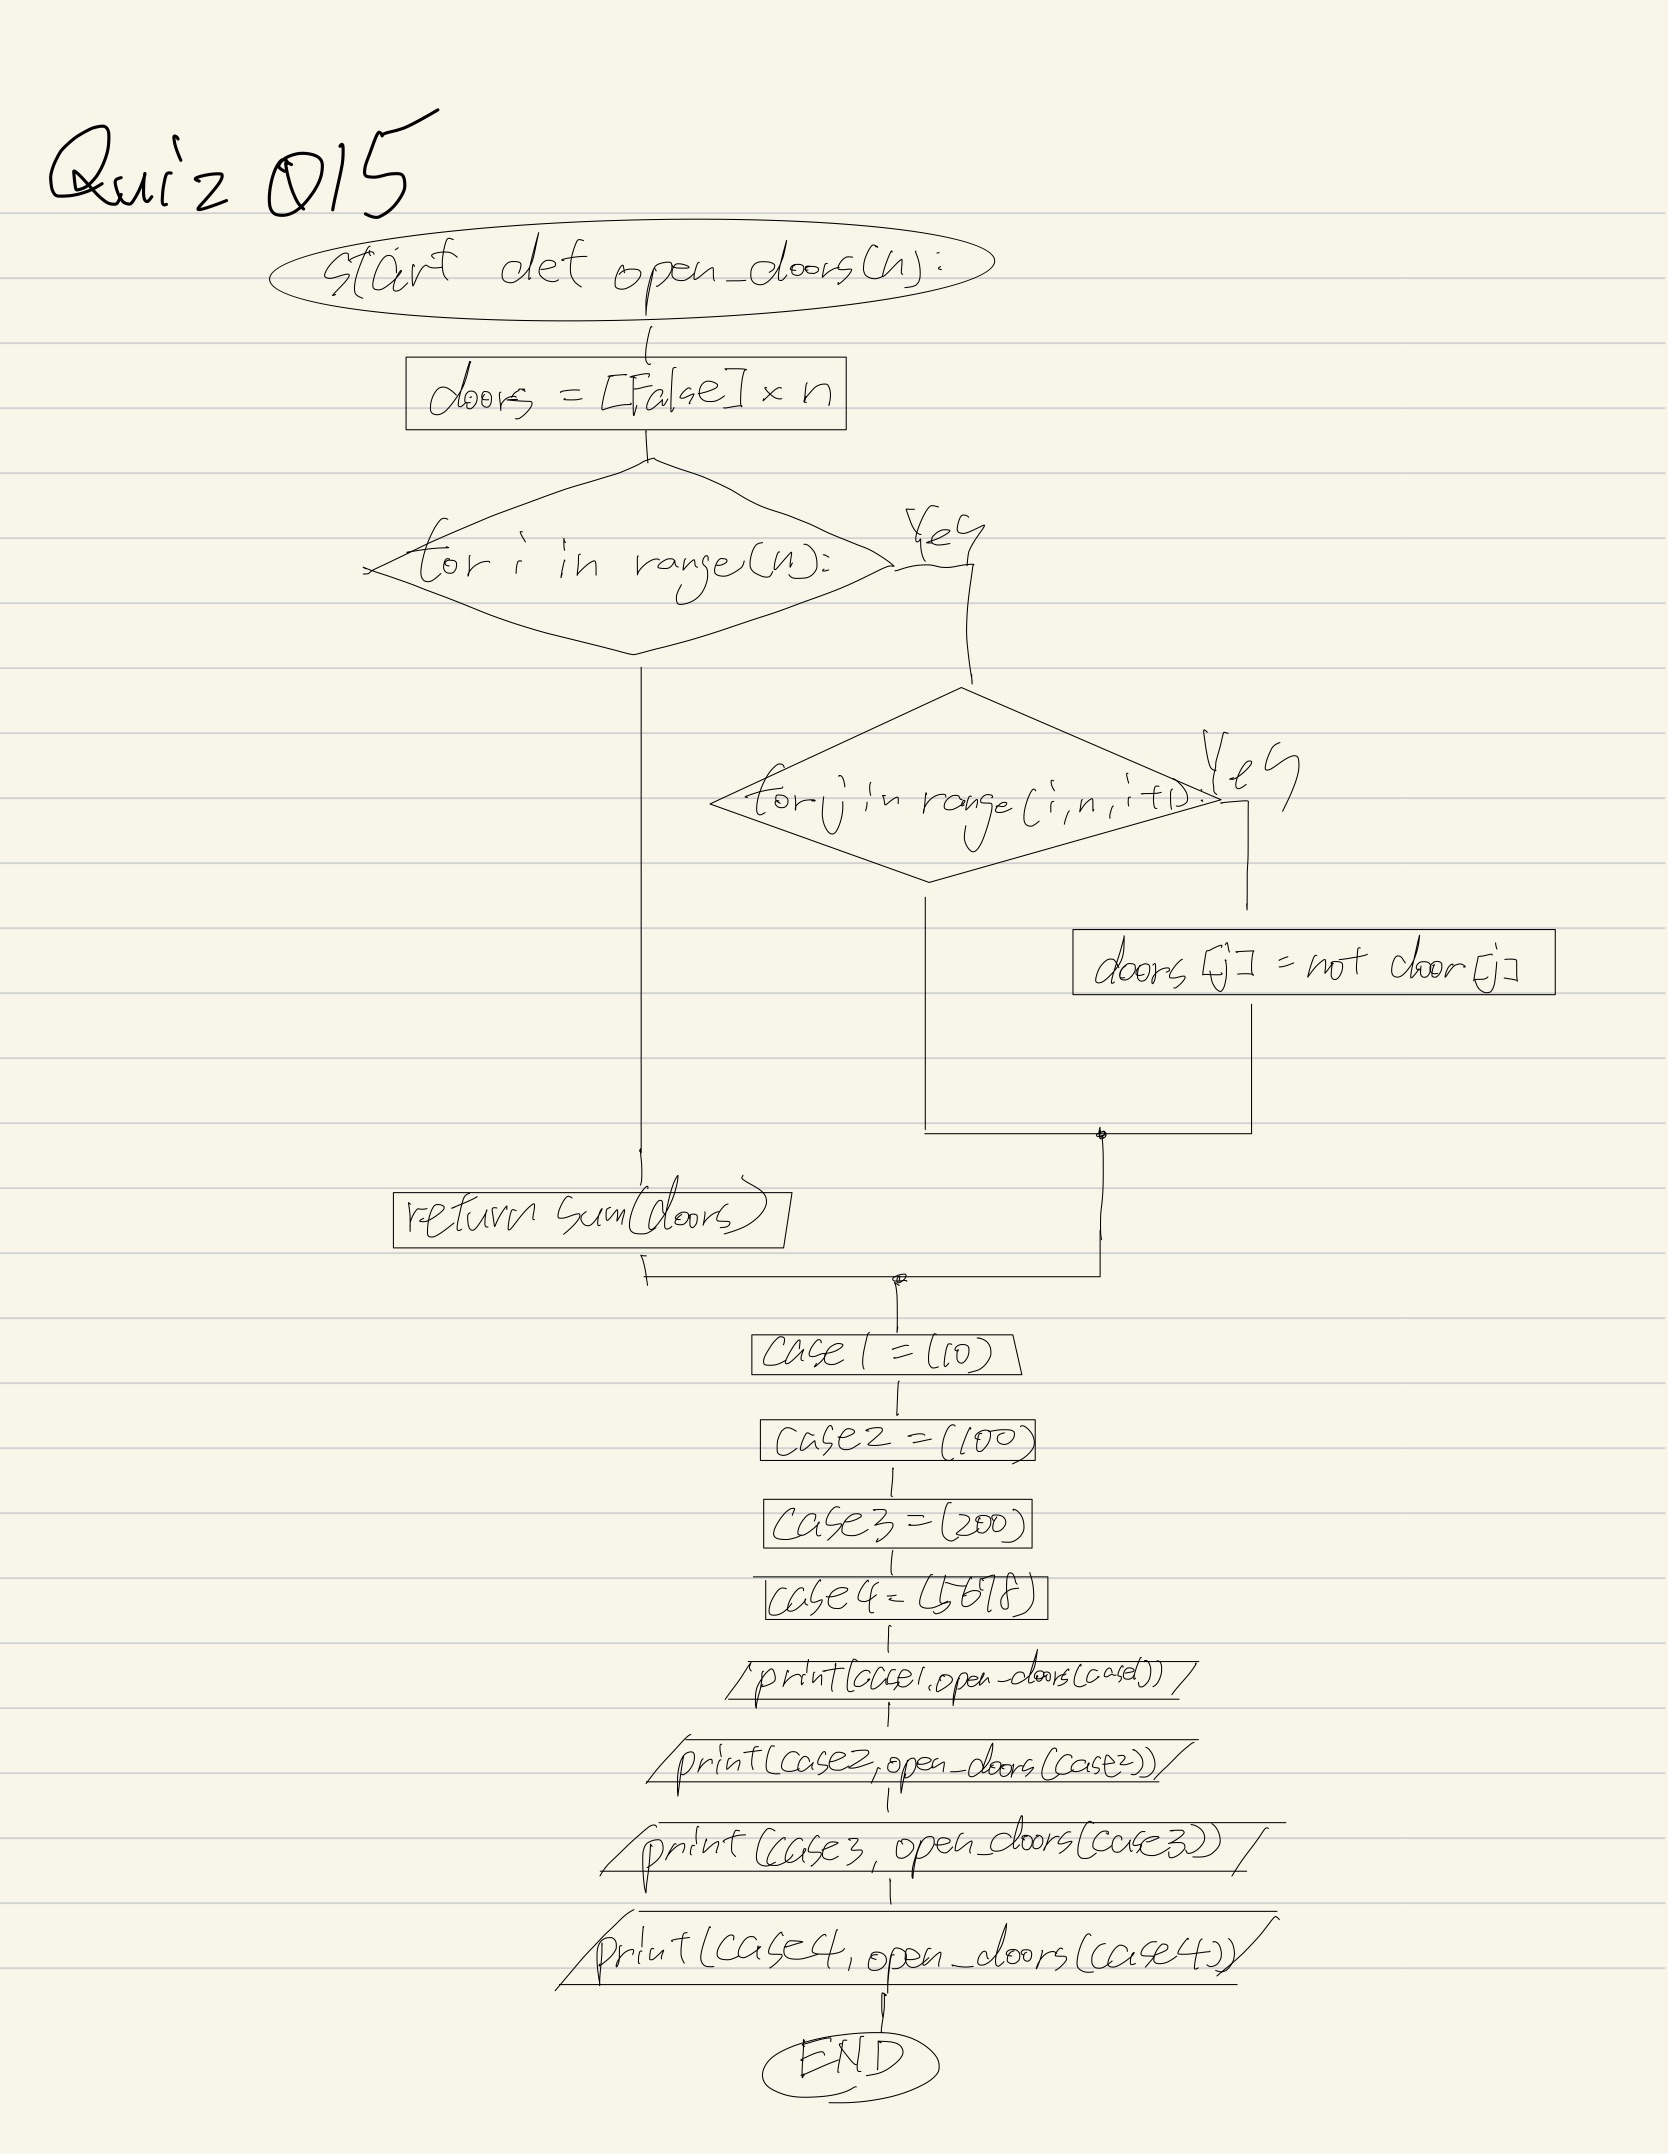 Quiz 015
start def open_doors(n):
doors = [False] × n
for i in range(n):
Yes
for j in range(i,n,i+1):
Yes
doors[j] = not door[j]
return sum(doors)
case1 = (10)
case2 = (100)
case3 = (200)
case4 = (5678)
print(case1,open_doors(case1))
print(case2,open_doors(case2))
print(case3, open_doors(case3))
print(case4, open_doors(case4))
END